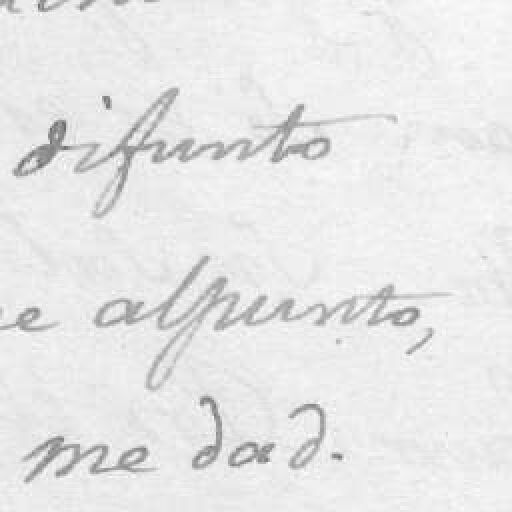 difunto
alpunto,
me dad.